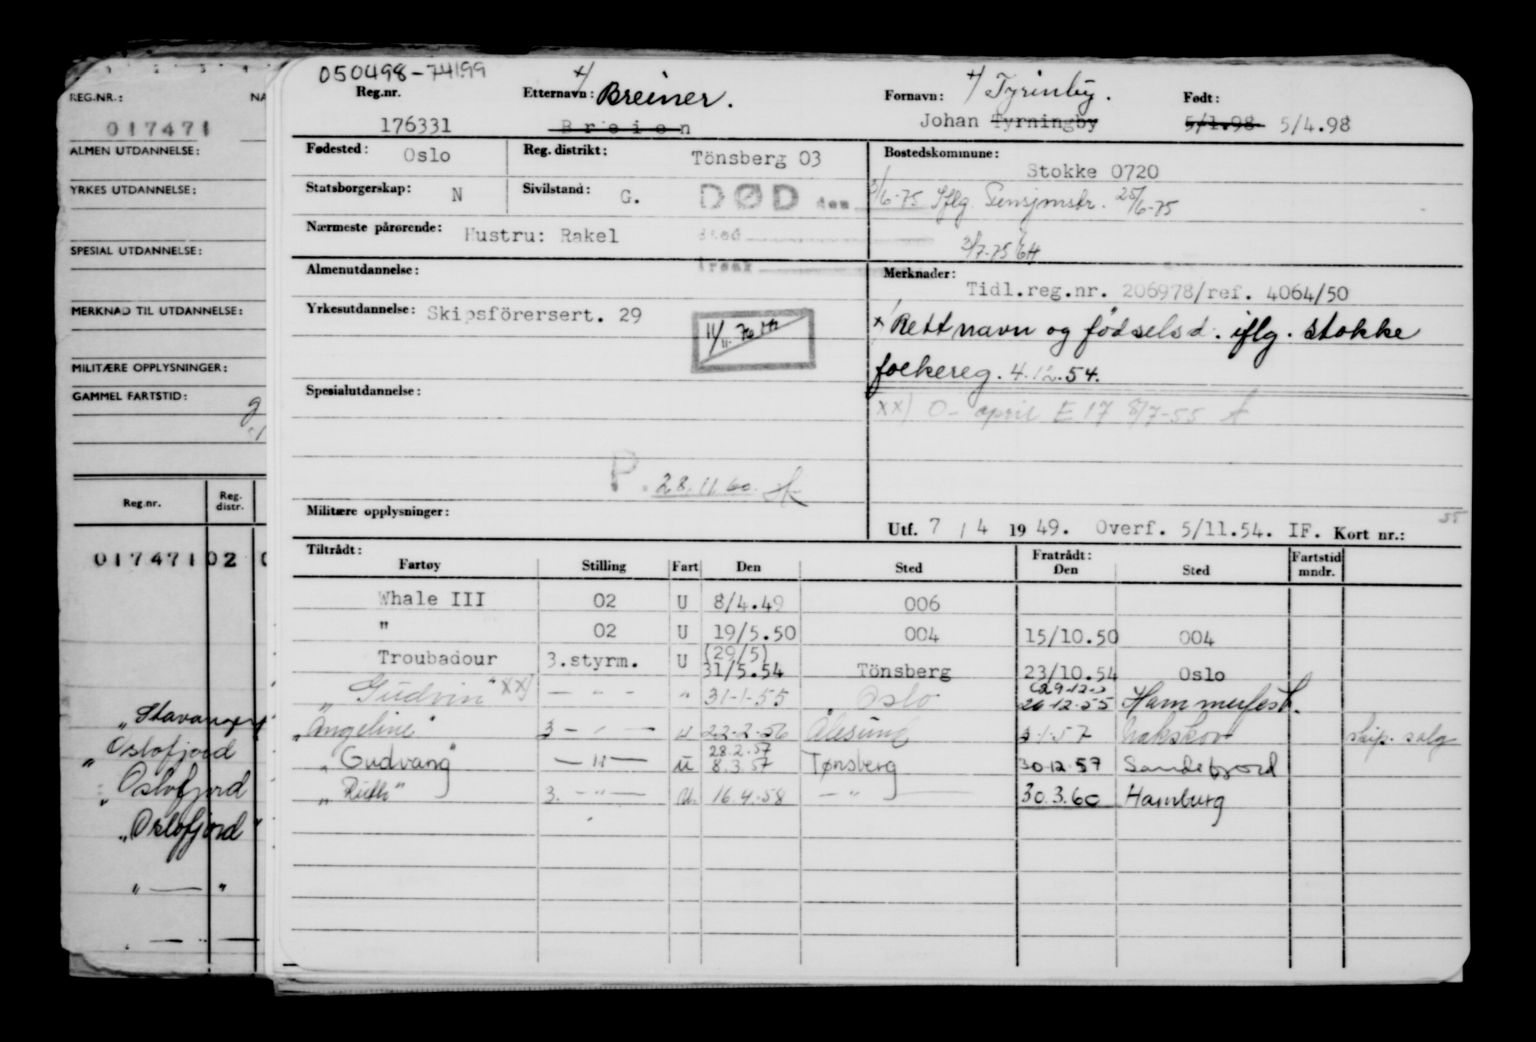 REG.NR.: NA
017471
ALMEN UTDANNELSE:
YRKES UTDANNELSE:
SPESIAL UTDANNELSE:
MERKNAD TIL UTDANNELSE:
MILITÆRE OPPLYSNINGER:
GAMMEL FARTSTID:
Reg.nr. Reg. distr.
017471 02 0
"Stavanger
"Oslofjord
"Oslofjord
"Oslofjord"
" — "
050498-74199
Reg.nr. Etternavn: x/ Breiner. Fornavn: x/ Tyrinby. Født:
176331 Breien Johan Tyrningby 5/1.98 5/4.98
Fødested: Oslo Reg. distrikt: Tönsberg 03 Bostedskommune: Stokke 0720
Statsborgerskap: N Sivilstand: G. DØD den
3/6-75 Iflg. Pensjonstr. 25/6-75
Nærmeste pårørende: Hustru: Rakel Sted
3/7-75
Almenutdannelse: Årsak Merknader:
Tidl.reg.nr. 206978/ref. 4064/50
Yrkesutdannelse: Skipsförersert. 29
x/ Rett navn og fødselsd. iflg. Stokke
folkereg. 4.12.54.
Spesialutdannelse:
xx) O- april E 17 8/7-55
P. 28.11.60.
Militære opplysninger: Utf. 7 / 4 1949. Overf. 5/11.54. IF. Kort nr.:
55
Tiltrådt: Fratrådt:
Fartøy Stilling Fart Den Sted Den Sted Fartstid mndr.
Whale III 02 U 8/4.49 006
" 02 U 19/5.50 004 15/10.50 004
Troubadour 3.styrm. U (29/5) 31/5.54 Tönsberg 23/10.54 Oslo
"Gudvin" xx) — " — " 31-1-55 Oslo (29-12-) 26-12-55 Hammerfest.
"Angeline" 3 — " — u 22-2-56 Ålesund 3-1-57 Nakskov skip. salg
"Gudvang" — " — u 28.2.57 8.3.57 Tønsberg 30.12.57 Sandefjord
"Ruth" 3. — " — u. 16.4.58 — " — 30.3.60 Hamburg